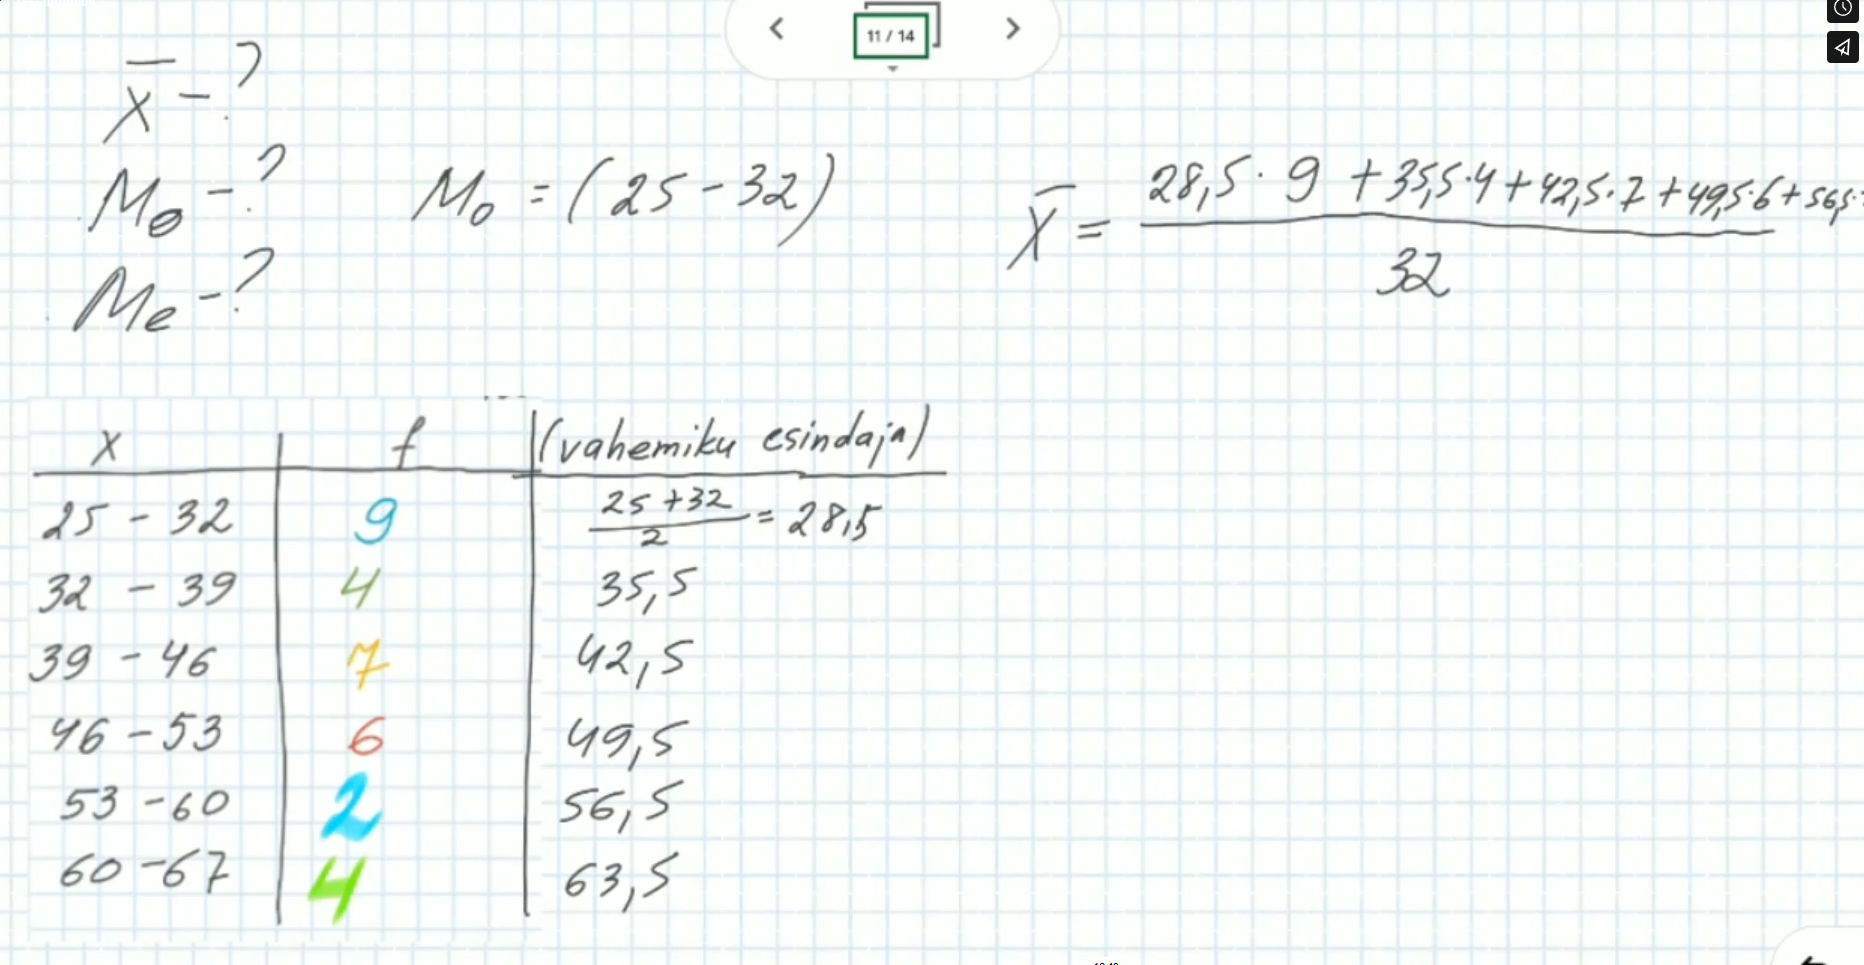 11 / 14
x̄ - ?
Mo - ?
Me - ?
Mo = (25 - 32)
x̄ = 28,5 · 9 + 35,5·4 + 42,5·7 + 49,5·6 + 56,5·
32
x f (vahemiku esindaja)
25 - 32 9 25 + 32 / 2 = 28,5
32 - 39 4 35,5
39 - 46 7 42,5
46 - 53 6 49,5
53 - 60 2 56,5
60 - 67 4 63,5